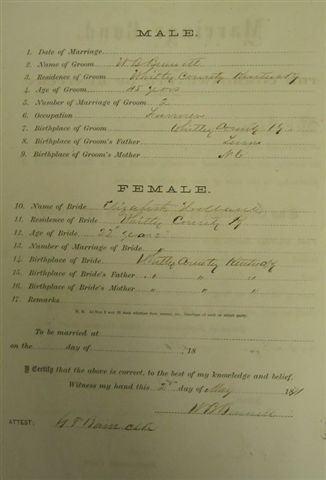 MALE.
1. Date of Marriage
2. Name of Groom W. B. Bennett
3. Residence of Groom Whitley County Kentucky
4. Age of Groom 45 years
5. Number of Marriage of Groom 2
6. Occupation Farmer
7. Birthplace of Groom Whitley County Ky
8. Birthplace of Groom's Father
9. Birthplace of Groom's Mother N C
FEMALE.
10. Name of Bride Elizabeth
11. Residence of Bride Whitley County Ky
12. Age of Bride 22 years
13. Number of Marriage of Bride "
14. Birthplace of Bride Whitley County Kentucky
15. Birthplace of Bride's Father " " "
16. Birthplace of Bride's Mother " " "
17. Remarks
To be married at
on the day of 18
I Certify that the above is correct, to the best of my knowledge and belief.
Witness my hand this 2nd day of May
W B Bennett
ATTEST: